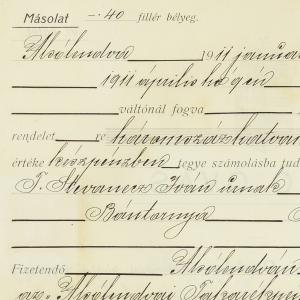 Másolat —.40 fillér bélyeg.
Alsólendva 1911 január
1911 április hó 9 én
váltónál fogva
rendelet re háromszázhatvan
értéke készpénzben tegye számolásba tud
T. Stevanecz Iván úrnak
Bántornya
Fizetendő Alsólendván
az Alsólendvai Takarékpén